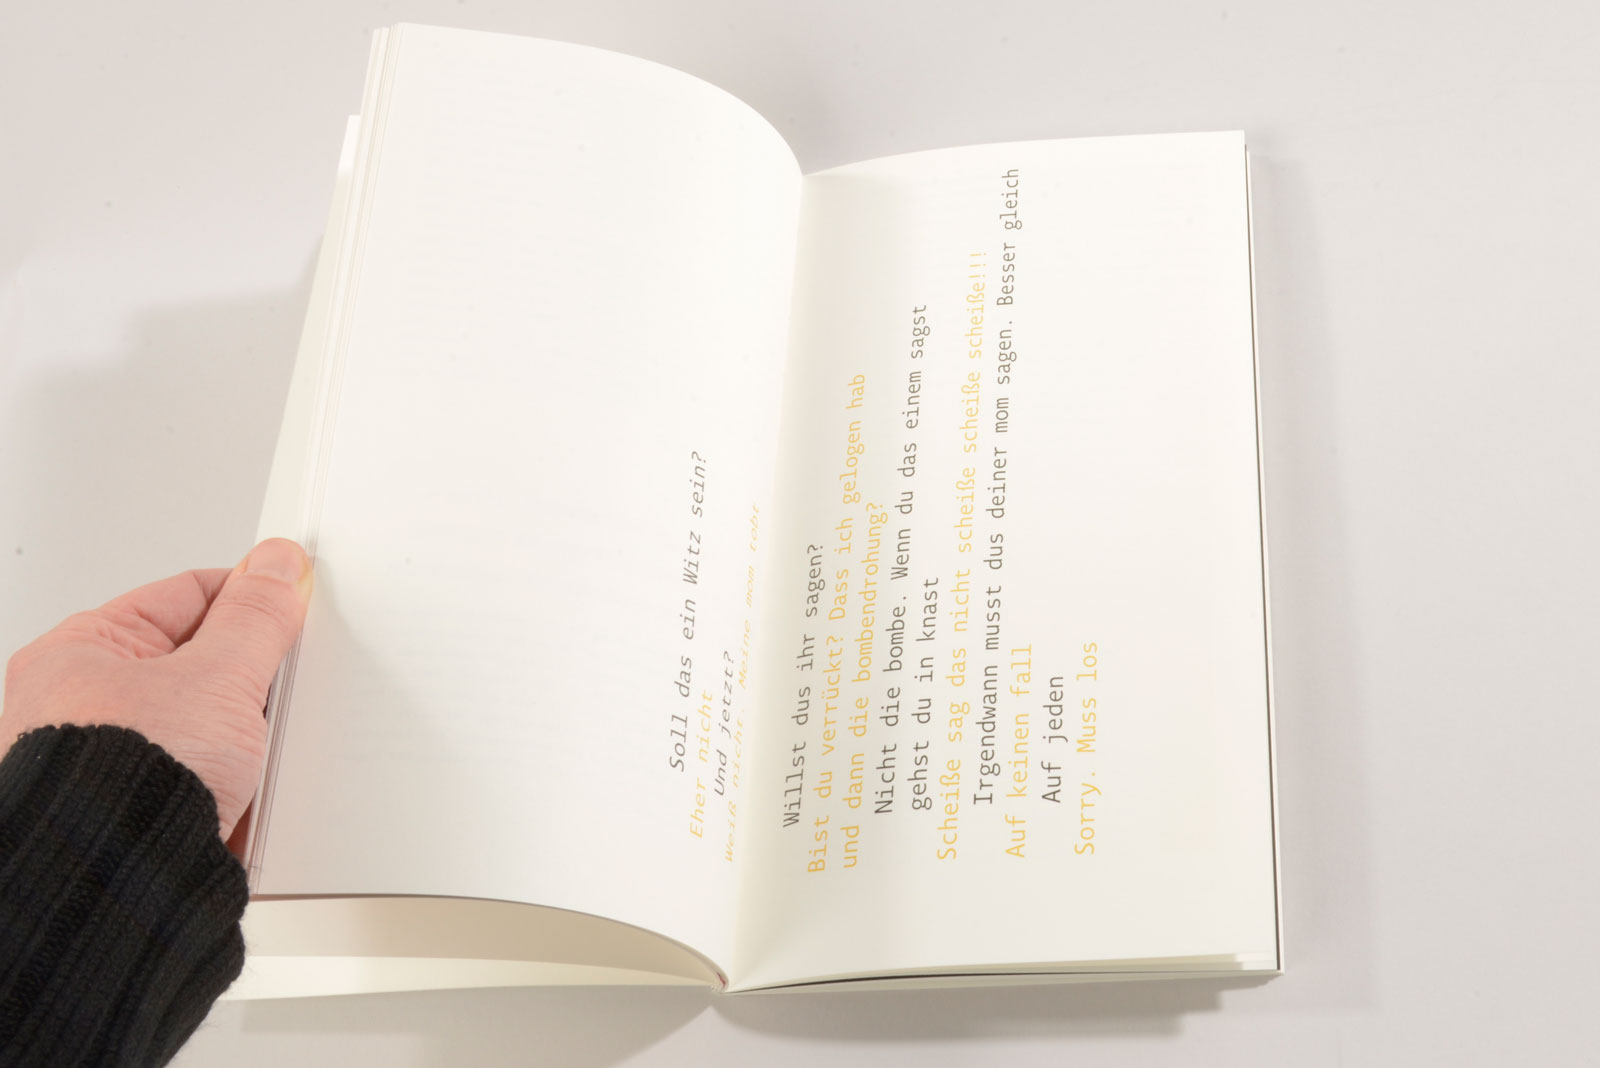 Soll das ein Witz sein?
Eher nicht
Und jetzt?
Weiß nicht. Meine mom tobt
Willst dus ihr sagen?
Bist du verrückt? Dass ich gelogen hab
und dann die bombendrohung?
Nicht die bombe. Wenn du das einem sagst
gehst du in knast
Scheiße sag das nicht scheiße scheiße scheiße!!!
Irgendwann musst dus deiner mom sagen. Besser gleich
Auf keinen fall
Auf jeden
Sorry. Muss los